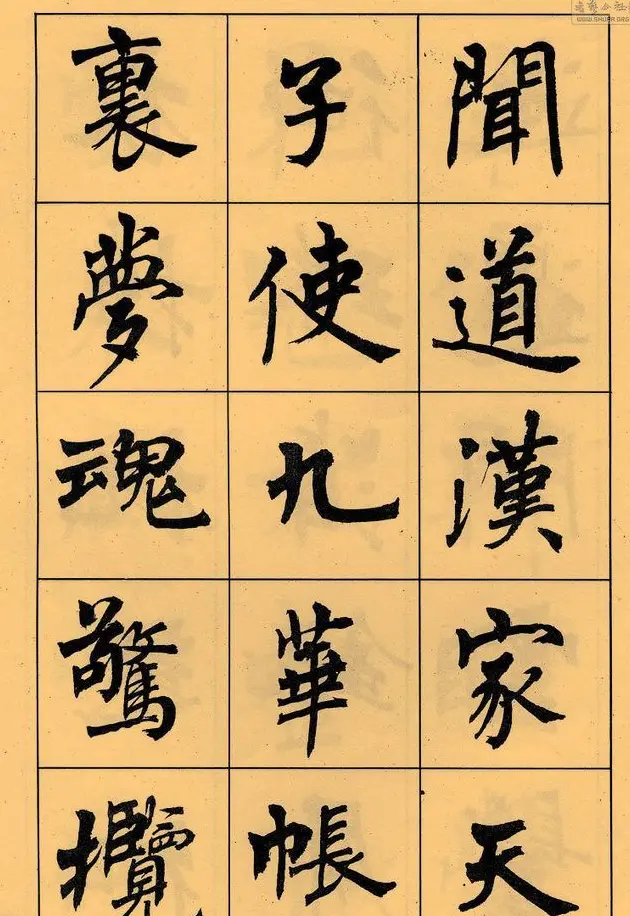 聞道漢家天
子使九華帳
裏夢魂驚攬
WWW.SHUFA.ORG